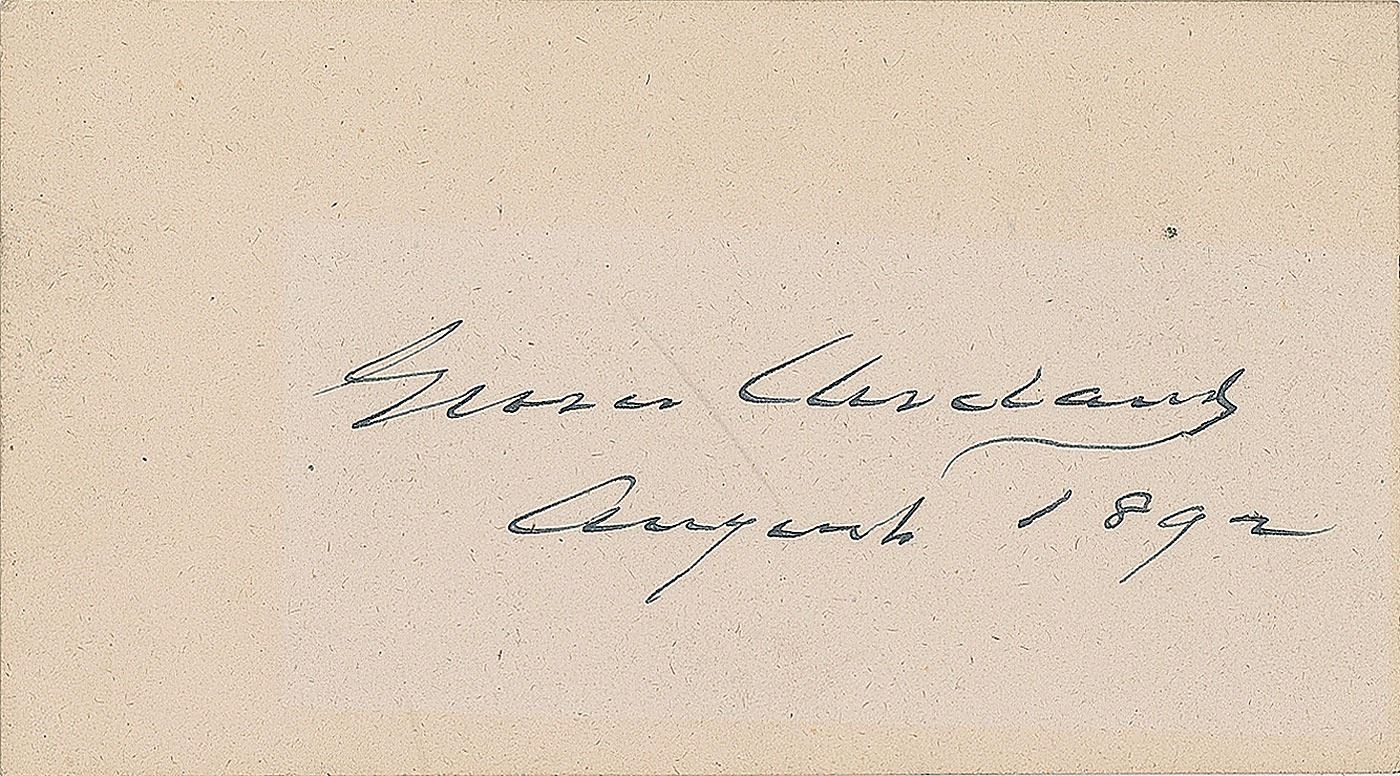 Grover Cleveland
August 1892